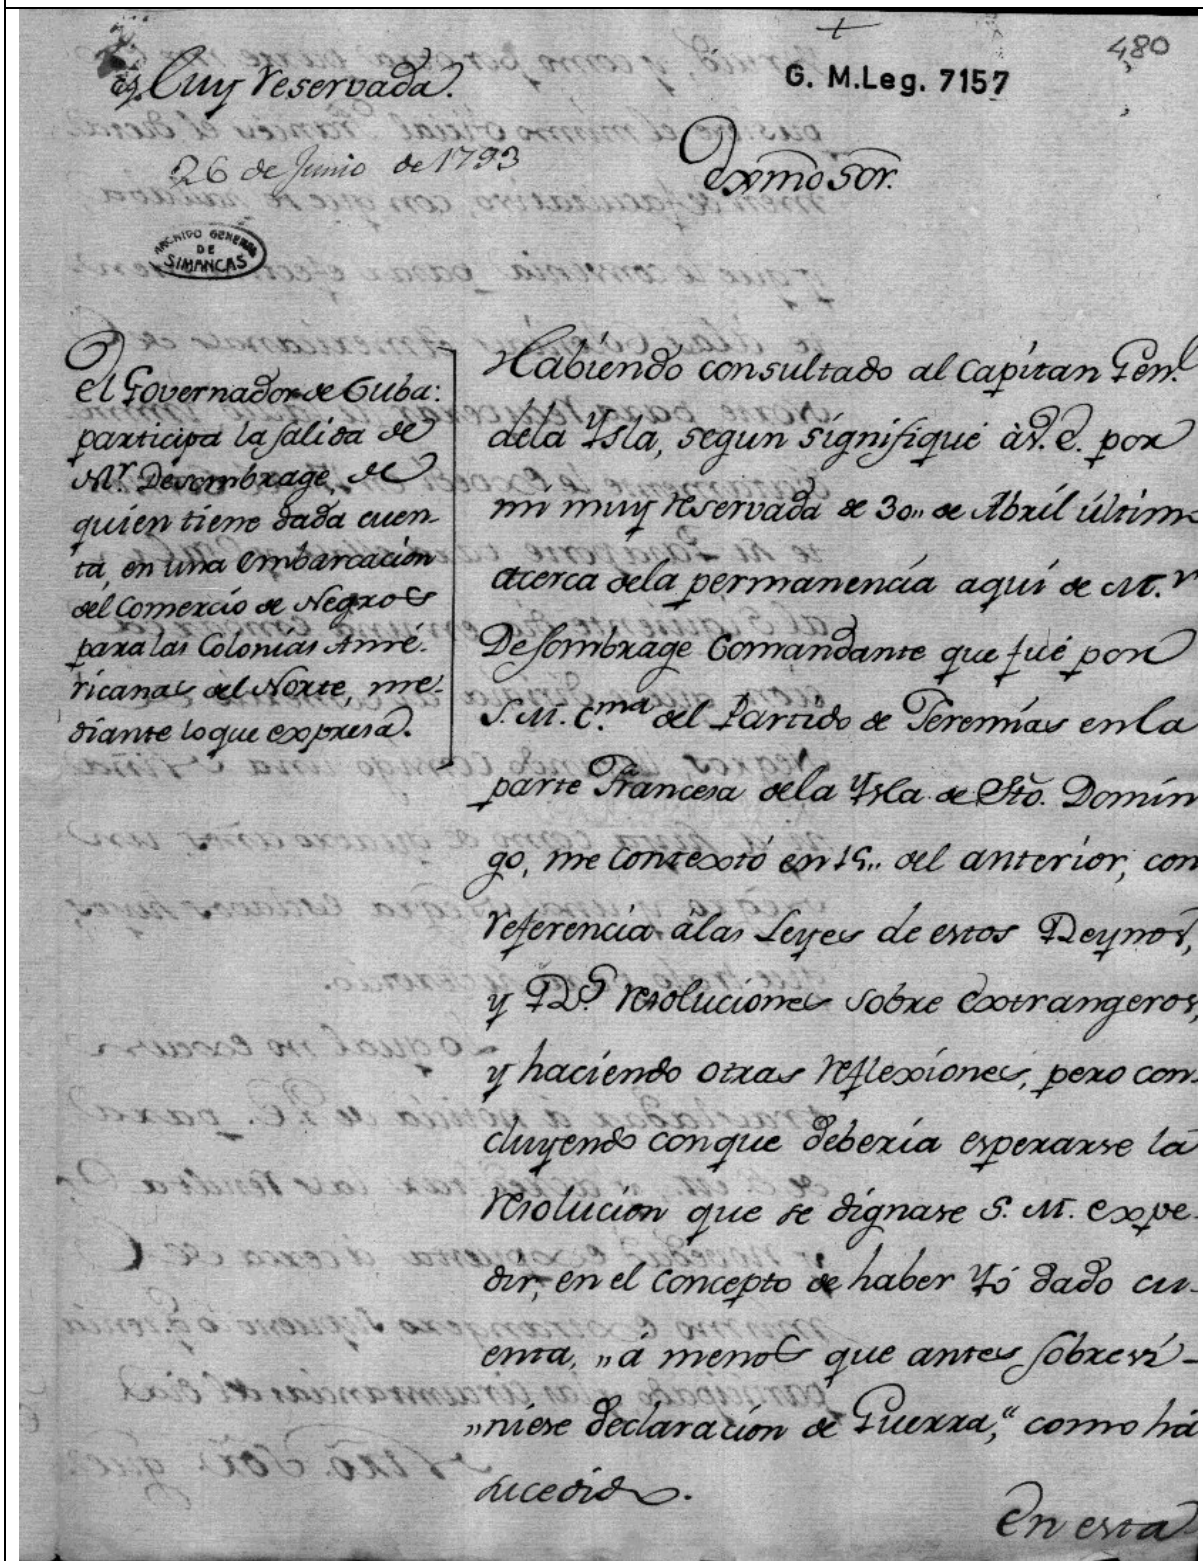 480
G. M. Leg. 7157
Muy reservada.
26 de Junio de 1793
Exmo Sor.
ARCHIVO GENERAL
DE
SIMANCAS
El Governador de Cuba:
participa la salida de
Mr. Desombrage, de
quien tiene dada cuen-
ta, en una embarcacion
del Comercio de Negros
para las Colonias Ame-
ricanas del Norte, me-
diante lo que expresa.
Habiendo consultado al Capitan Genl.
dela Ysla, segun signifiqué àV.E. por
mi muy reservada de 30,, de Abril últim
acerca dela permanencia aquí de Mr.
Desombrage Comandante que fué por
S.M. C.ma del Partido de Teremías en la
parte Francesa dela Ysla de Sto. Domin
go, me contextó en 15,, del anterior, con
referencia àlas Leyes de estos Reynos,
y Rs. resoluciones sobre extrangeros,
y haciendo otras reflexiones, pero con-
cluyendo conque debería esperarse la
resolucion que se dignase S. M. expe-
dir, en el concepto de haber Yó dado cu-
enta, „á menos que antes sobrevi-
„niese declaración de Guerra,“ como há
sucedido.
En esta